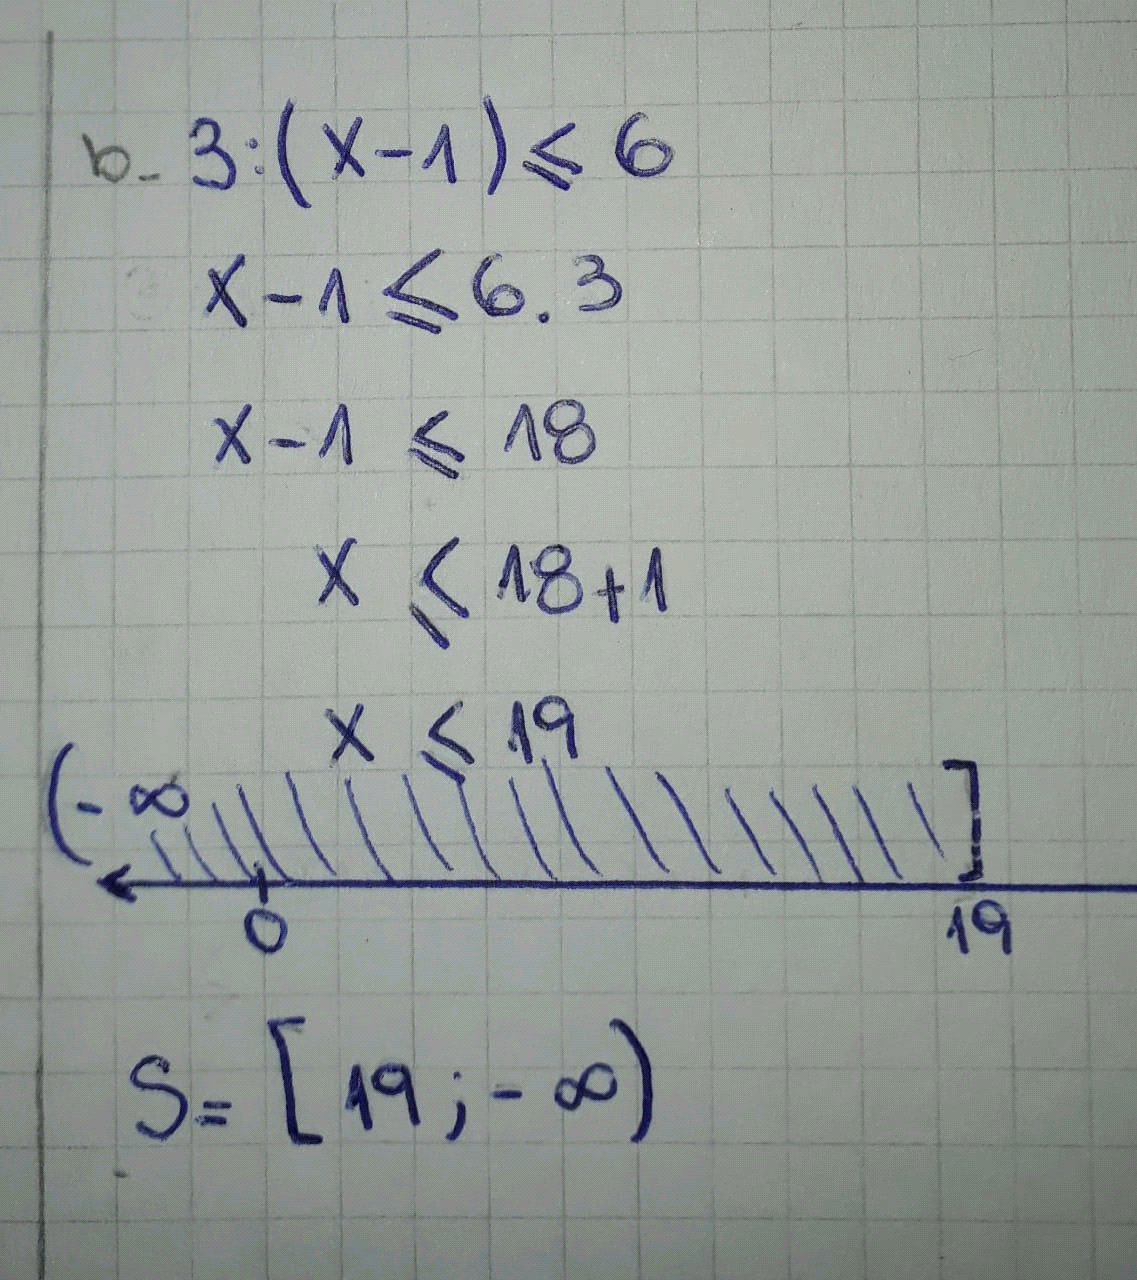 b- 3:(x-1)≤6
x-1≤6.3
x-1≤18
x≤18+1
x≤19
(-∞ ]
0 19
S=[19;-∞)